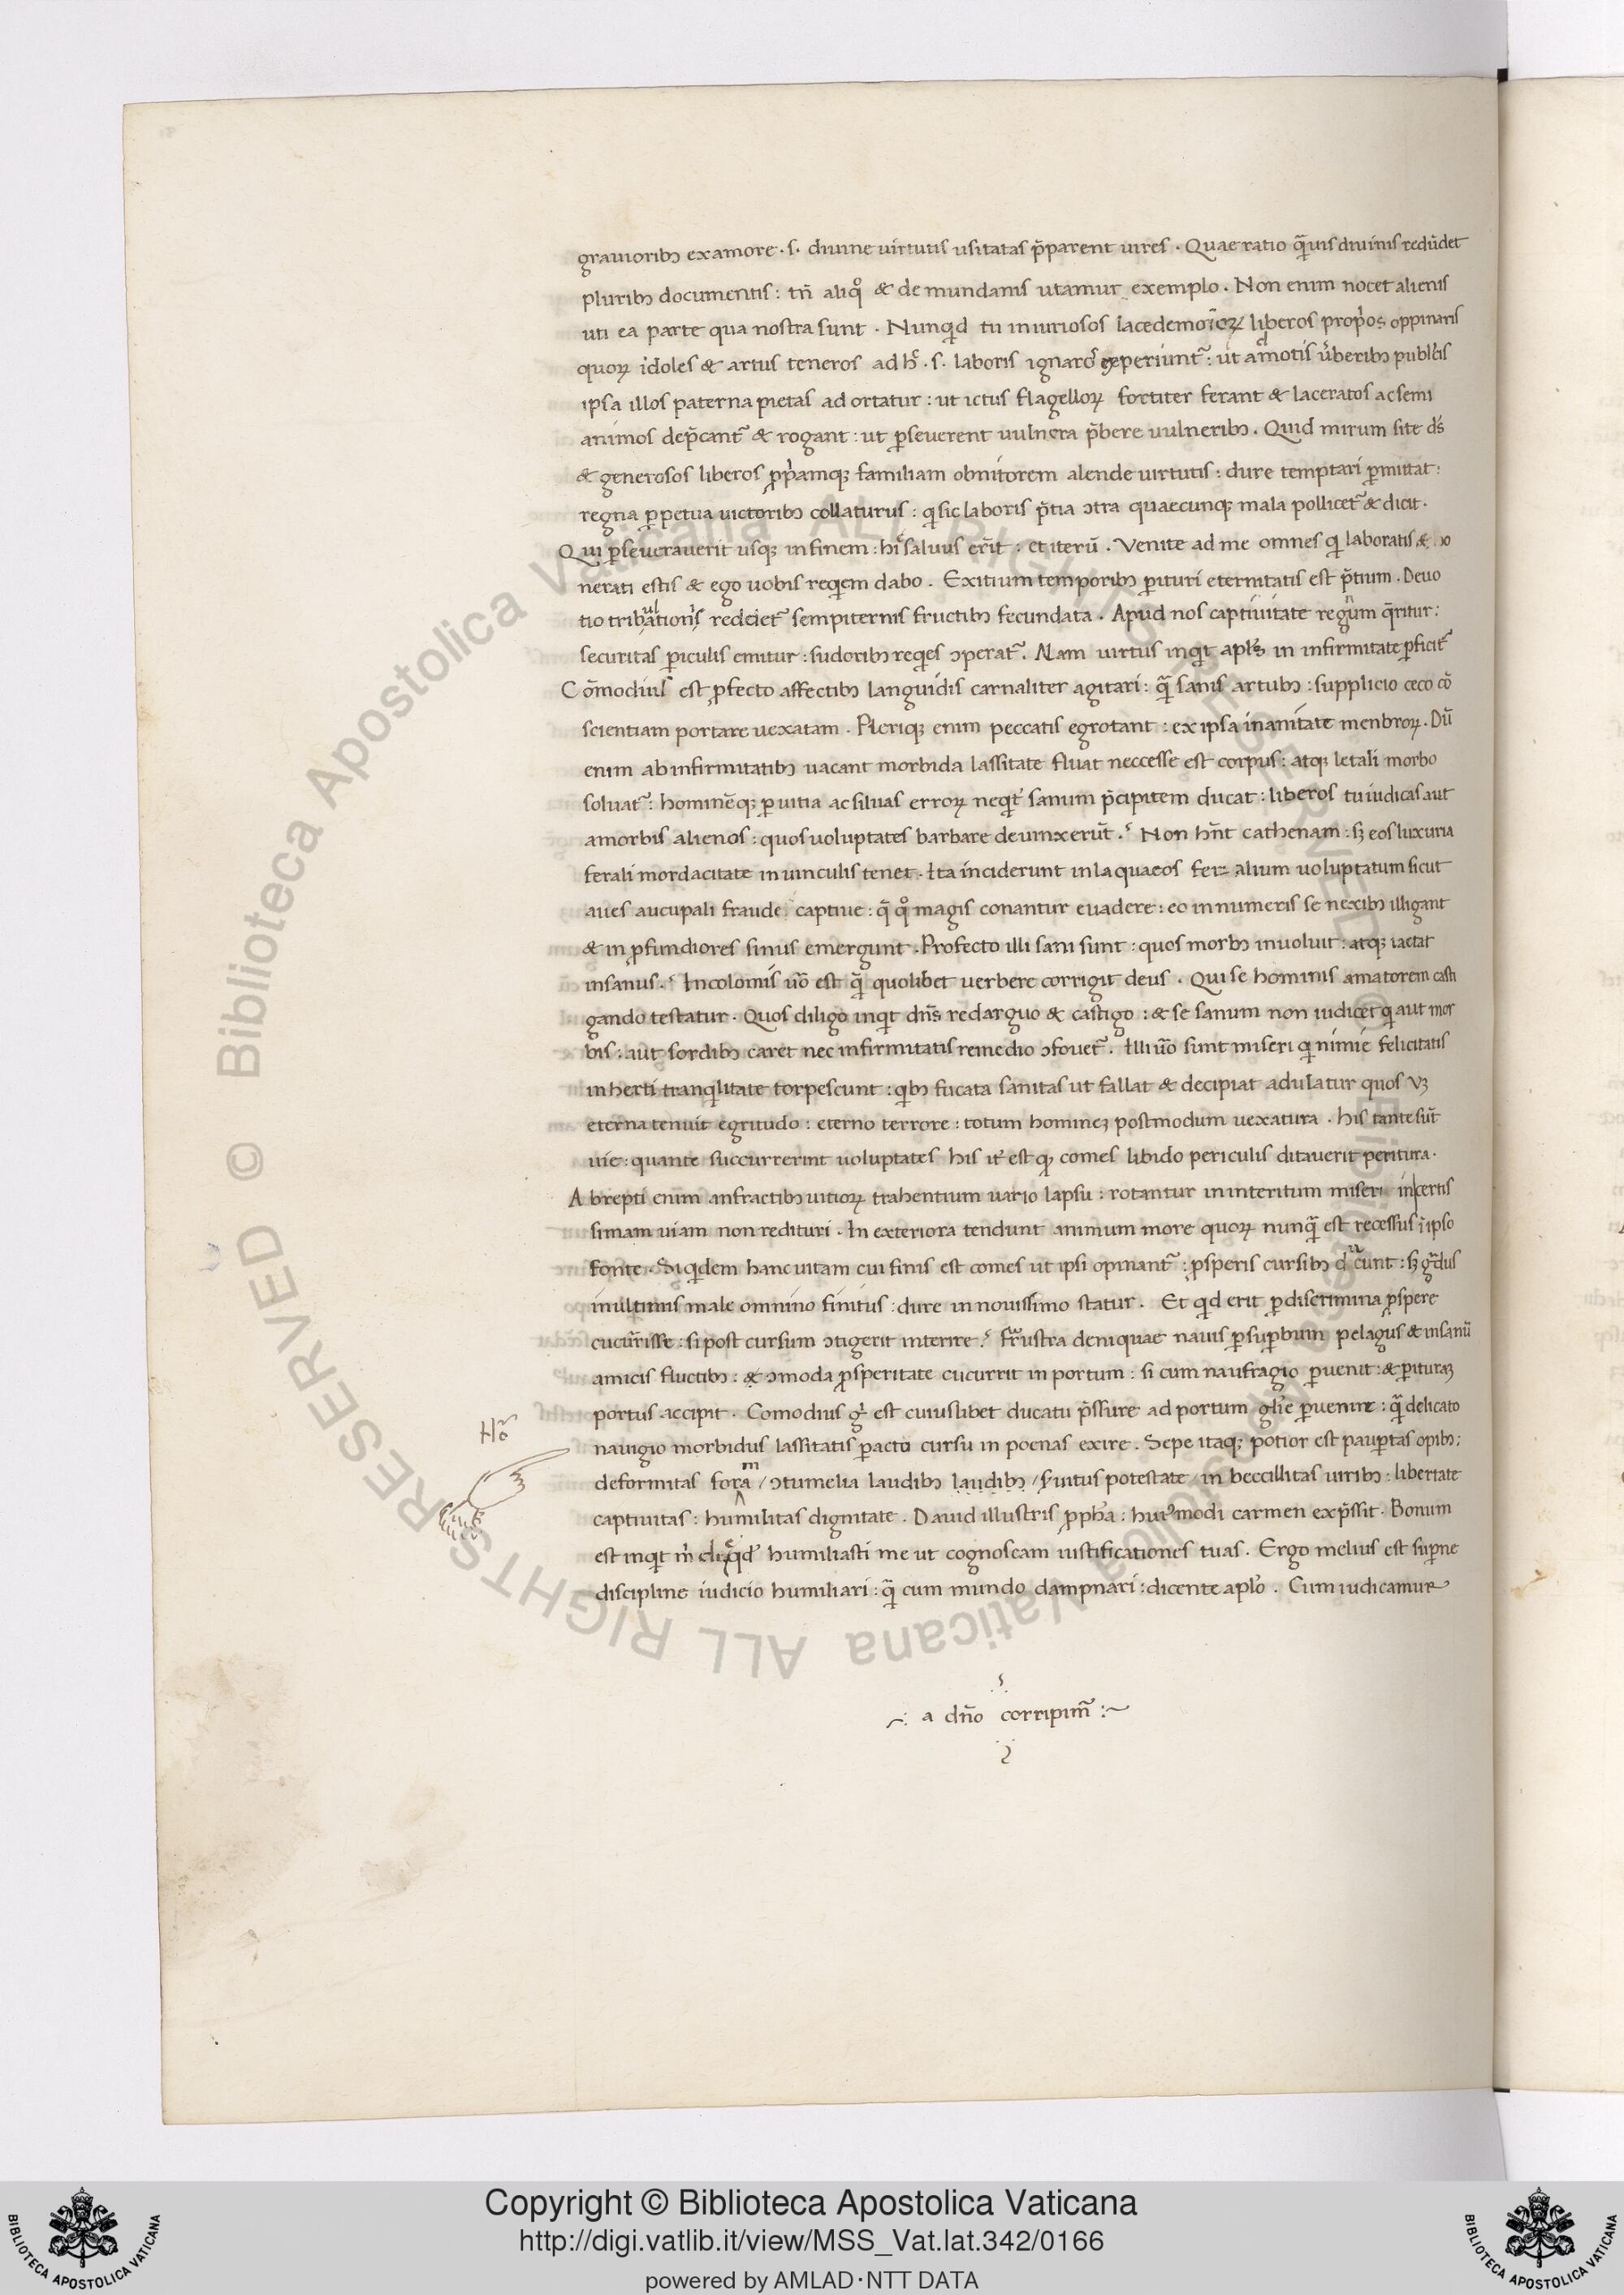 grauioribꝫ ex amore · s · diuine uirtutis usitatas p̄parent uires . Quae ratio quāuis diuinis redūdet
pluribꝫ documentis : tn̄ aliqͦ & de mundanis utamur exemplo . Non enim nocet alienis
uti ea parte qua nostra sunt . Nunqͥd tu iniuriosos lacedemonioꝝ liberos propͥos oppinaris
quoꝝ idoles & artus teneros ad h̄ · s · laboris ignaros experiunt᷑ : ut amotis uberibꝫ publicis
ipsa illos paterna pietas ad ortatur : ut ictus flagelloꝝ fortiter ferant & laceratos ac semi
animos dep̄cant᷑ & rogant : ut ꝑseuerent uulnera p̄bere uulneribꝫ . Quid mirum si te ds̄
& generosos liberos ꝓpͥamqꝫ familiam ob nitorem alende uirtutis : dure temptari ꝑmittat :
regna ꝑpetua uictoribꝫ collaturus : qͥ sic laboris p̄tia ↄtra quaecunqꝫ mala pollicet᷑ & dicit .
Qui ꝑseuerauerit usqꝫ in finem : hͥc saluus erit : et iterū . Venite ad me omnes qͥ laboratis & ho
nerati estis & ego uobis reqͥem dabo . Exitium temporibꝫ ꝑituri eternitatis est p̄tium . Deuo
tio tribulationis redeiet᷑ sempiternis fructibꝫ fecundata . Apud nos captiuitate regnum q̄ritur :
securitas ꝑiculis emitur : sudoribꝫ reqͥes ↄperat᷑ . Nam uirtus inqͥt apl̄s in infirmitate ꝑficit᷑
Cōmodius est ꝓfecto affectibꝫ languidis carnaliter agitari : qͣ̄ sanis artubꝫ : supplicio ceco cō
scientiam portare uexatam . Plerique enim peccatis egrotant : ex ipsa inanitate menbroꝝ . Dū
enim ab infirmitatibꝫ uacant morbida lassitate fluat neccesse est corpus : atqꝫ letali morbo
soluat᷑ : hominēqꝫ ꝑ uitia ac siluas erroꝝ neqͥt̕ sanum p̄cipitem ducat : liberos tu iudicas aut
a morbis alienos : quos uoluptates barbare deuinxerūt . Non hn̄t cathenam : sꝫ eos luxuria
ferali mordacitate in uinculis tenet . Ita inciderunt in laquaeos fer alium uoluptatum sicut
aues aucupali fraude captiue : q̄ qͦ magis conantur euadere : eo innumeris se nexibꝫ illigant
& in ꝓfundiores sinus emergunt . Profecto illi sani sunt : quos morbꝫ inuoluit : atqꝫ iactat
insanus . Incolomis uͦo est qͣ̄ quolibet uerbere corrigit deus . Qui se hominis amatorem casti
gando testatur . Quos diligo inqͥt dn̄s redarguo & castigo : & se sanum non iudicet qͥ aut mor
bis : aut sordibꝫ caret nec infirmitatis remedio ↄfouet᷑ . Illi uͦo sunt miseri qͥ nimie felicitatis
inherti tranqͥlitate torpescunt : qͥbꝫ fucata sanitas ut fallat & decipiat adulatur quos uꝫ
eterna tenuit egritudo : eterno terrore : totum hominēꝫ postmodum uexatura . his tante sūt
uie : quante succurrerint uoluptates his it̕ est qꝫ comes libido periculis ditauerit peritura .
Abrepti enim anfractibꝫ uitioꝝ trahentium uario lapsu : rotantur in interitum miseri in certis
simam uiam non redituri . In exteriora tendunt animum more quoꝝ nunqͣ̄ est recessus ī ipso
fonte . Siqͥdem hanc uitam cui finis est comes ut ipsi opinant᷑ : ꝓsperis cursibꝫ ducunt : sꝫ gͣdus
in ultimis male omnino finitus : dure in nouissimo statur . Et qͥd erit ꝑ discrimina ꝓspere
cucurisse : si post cursum ↄtigerit interire . frustra deniquae nauis ꝑ supꝑbum pelagus & insanū
amicis fluctibꝫ : & ↄmoda ꝓsperitate cucurrit in portum : si cum naufragio ꝑuenit : & ꝑituraꝫ
portus accipit . Comodius gͥ est cuiuslibet ducatu p̄ssure ad portum gl̄ie ꝑuenire : qͣ̄ delicato
nauigio morbidus lassitatis ꝑacto cursu in poenas exire . Sepe itaqꝫ potior est pauꝑtas opibꝫ :
deformitas forma / ↄtumelia laudibꝫ laudibꝫ / seruitus potestate / in beccillitas uiribꝫ : libertate
captiuitas : humilitas dignitate . Dauid illustris ꝓpha : huiꝰmodi carmen exp̄ssit . Bonum
est inqͥt m̄ dn̄e qd̕ humiliasti me ut cognoscam iustificationes tuas . Ergo melius est suꝑne
discipline iudicio humiliari : qͣ̄ cum mundo dampnari : dicente aplͦo . Cum iudicamur
a dn̄o corripim̄
Copyright © Biblioteca Apostolica Vaticana
http://digi.vatlib.it/view/MSS_Vat.lat.342/0166
powered by AMLAD·NTT DATA
BIBLIOTECA APOSTOLICA VATICANA
BIBLIOTECA APOSTOLICA VATICANA
© Biblioteca Apostolica Vaticana ALL RIGHTS RESERVED
© Biblioteca Apostolica Vaticana ALL RIGHTS RESERVED